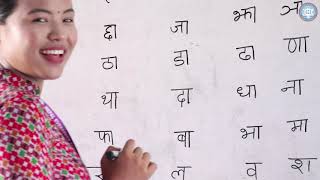 द्दा जा झा ञ
ठा डा ढा णा
था दा धा ना
फा बा भा मा
ल व श